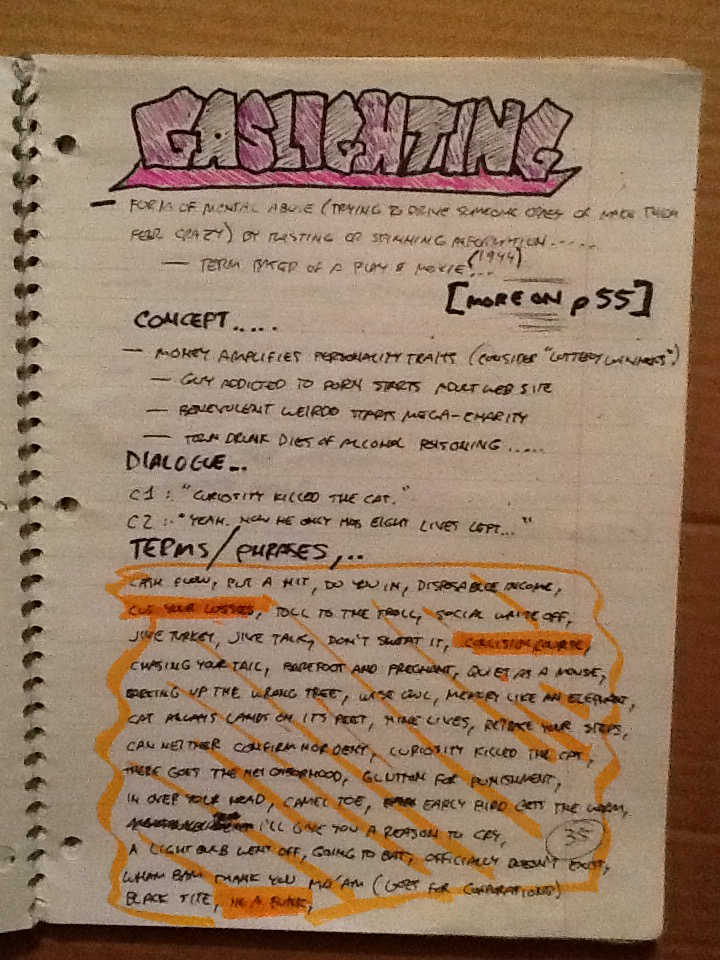 GASLIGHTING
— FORM OF MENTAL ABUSE (TRYING TO DRIVE SOMEONE CRAZY OR MAKE THEM
FEEL CRAZY) BY TWISTING OR SPINNING INFORMATION.....
— TERM BASED OF A PLAY & MOVIE (1944)...
[MORE ON p55]
CONCEPT.....
— MONEY AMPLIFIES PERSONALITY TRAITS (CONSIDER "LOTTERY WINNERS")
— GUY ADDICTED TO PORN STARTS ADULT WEB SITE
— BENEVOLENT WEIRDO STARTS MEGA-CHARITY
— TOWN DRUNK DIES OF ALCOHOL POISONING.....
DIALOGUE...
C1: "CURIOSITY KILLED THE CAT."
C2: "YEAH. NOW HE ONLY HAS EIGHT LIVES LEFT..."
TERMS/PHRASES,..
CASH FLOW, PUT A HIT, DO YOU IN, DISPOSABLE INCOME,
CUT YOUR LOSSES, TOLL TO THE TROLL, SOCIAL WRITE OFF,
JIVE TURKEY, JIVE TALK, DON'T SWEAT IT, COLLISION COURSE,
CHASING YOUR TAIL, BAREFOOT AND PREGNANT, QUIET AS A MOUSE,
BARKING UP THE WRONG TREE, WISE OWL, MEMORY LIKE AN ELEPHANT,
CAT ALWAYS LANDS ON ITS FEET, NINE LIVES, RETRACE YOUR STEPS,
CAN NEITHER CONFIRM NOR DENY, CURIOSITY KILLED THE CAT,
THERE GOES THE NEIGHBORHOOD, GLUTTON FOR PUNISHMENT,
IN OVER YOUR HEAD, CAMEL TOE, EARLY BIRD GETS THE WORM,
I'LL GIVE YOU A REASON TO CRY,
A LIGHT BULB WENT OFF, GOING TO BAT, OFFICIALLY DOESN'T EXIST,
35
WHAM BAM THANK YOU MA'AM (FOR CORPORATIONS)
BLACK TITE, IN A FUNK,